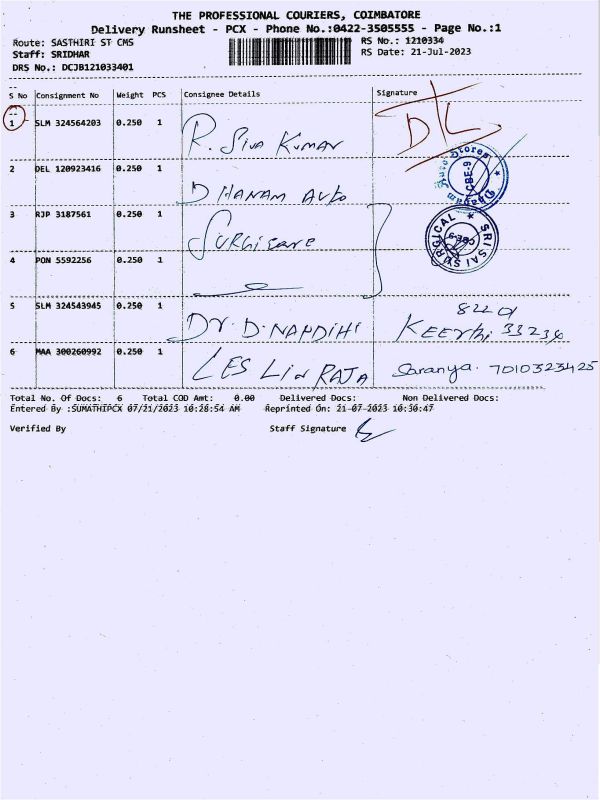 THE PROFESSIONAL COURIERS, COIMBATORE
Delivery Runsheet - PCX - Phone No.:0422-3505555 - Page No.:1
Route: SASTHIRI ST CMS RS No.: 1210334
Staff: SRIDHAR RS Date: 21-Jul-2023
DRS No.: DCJB121033401
S No Consignment No Weight PCS Consignee Details Signature
1 SLM 324564203 0.250 1 R. Siva Kumar D/L
2 DEL 120923416 0.250 1 DHANAM Auto Stores CBE-9
3 RJP 3187561 0.250 1 Surgicare SRI SAI SURGICAL CBE-9
4 PON 5592256 0.250 1
5 SLM 324543945 0.250 1 Dr. D. NANDIHI Keerthi 82201 33234
6 MAA 300260992 0.250 1 LES LIN RAJA Saranya. 7010323425
Total No. Of Docs: 6 Total COD Amt: 0.00 Delivered Docs: Non Delivered Docs:
Entered By :SUMATHIPCX 07/21/2023 10:28:54 AM Reprinted On: 21-07-2023 10:30:47
Verified By Staff Signature